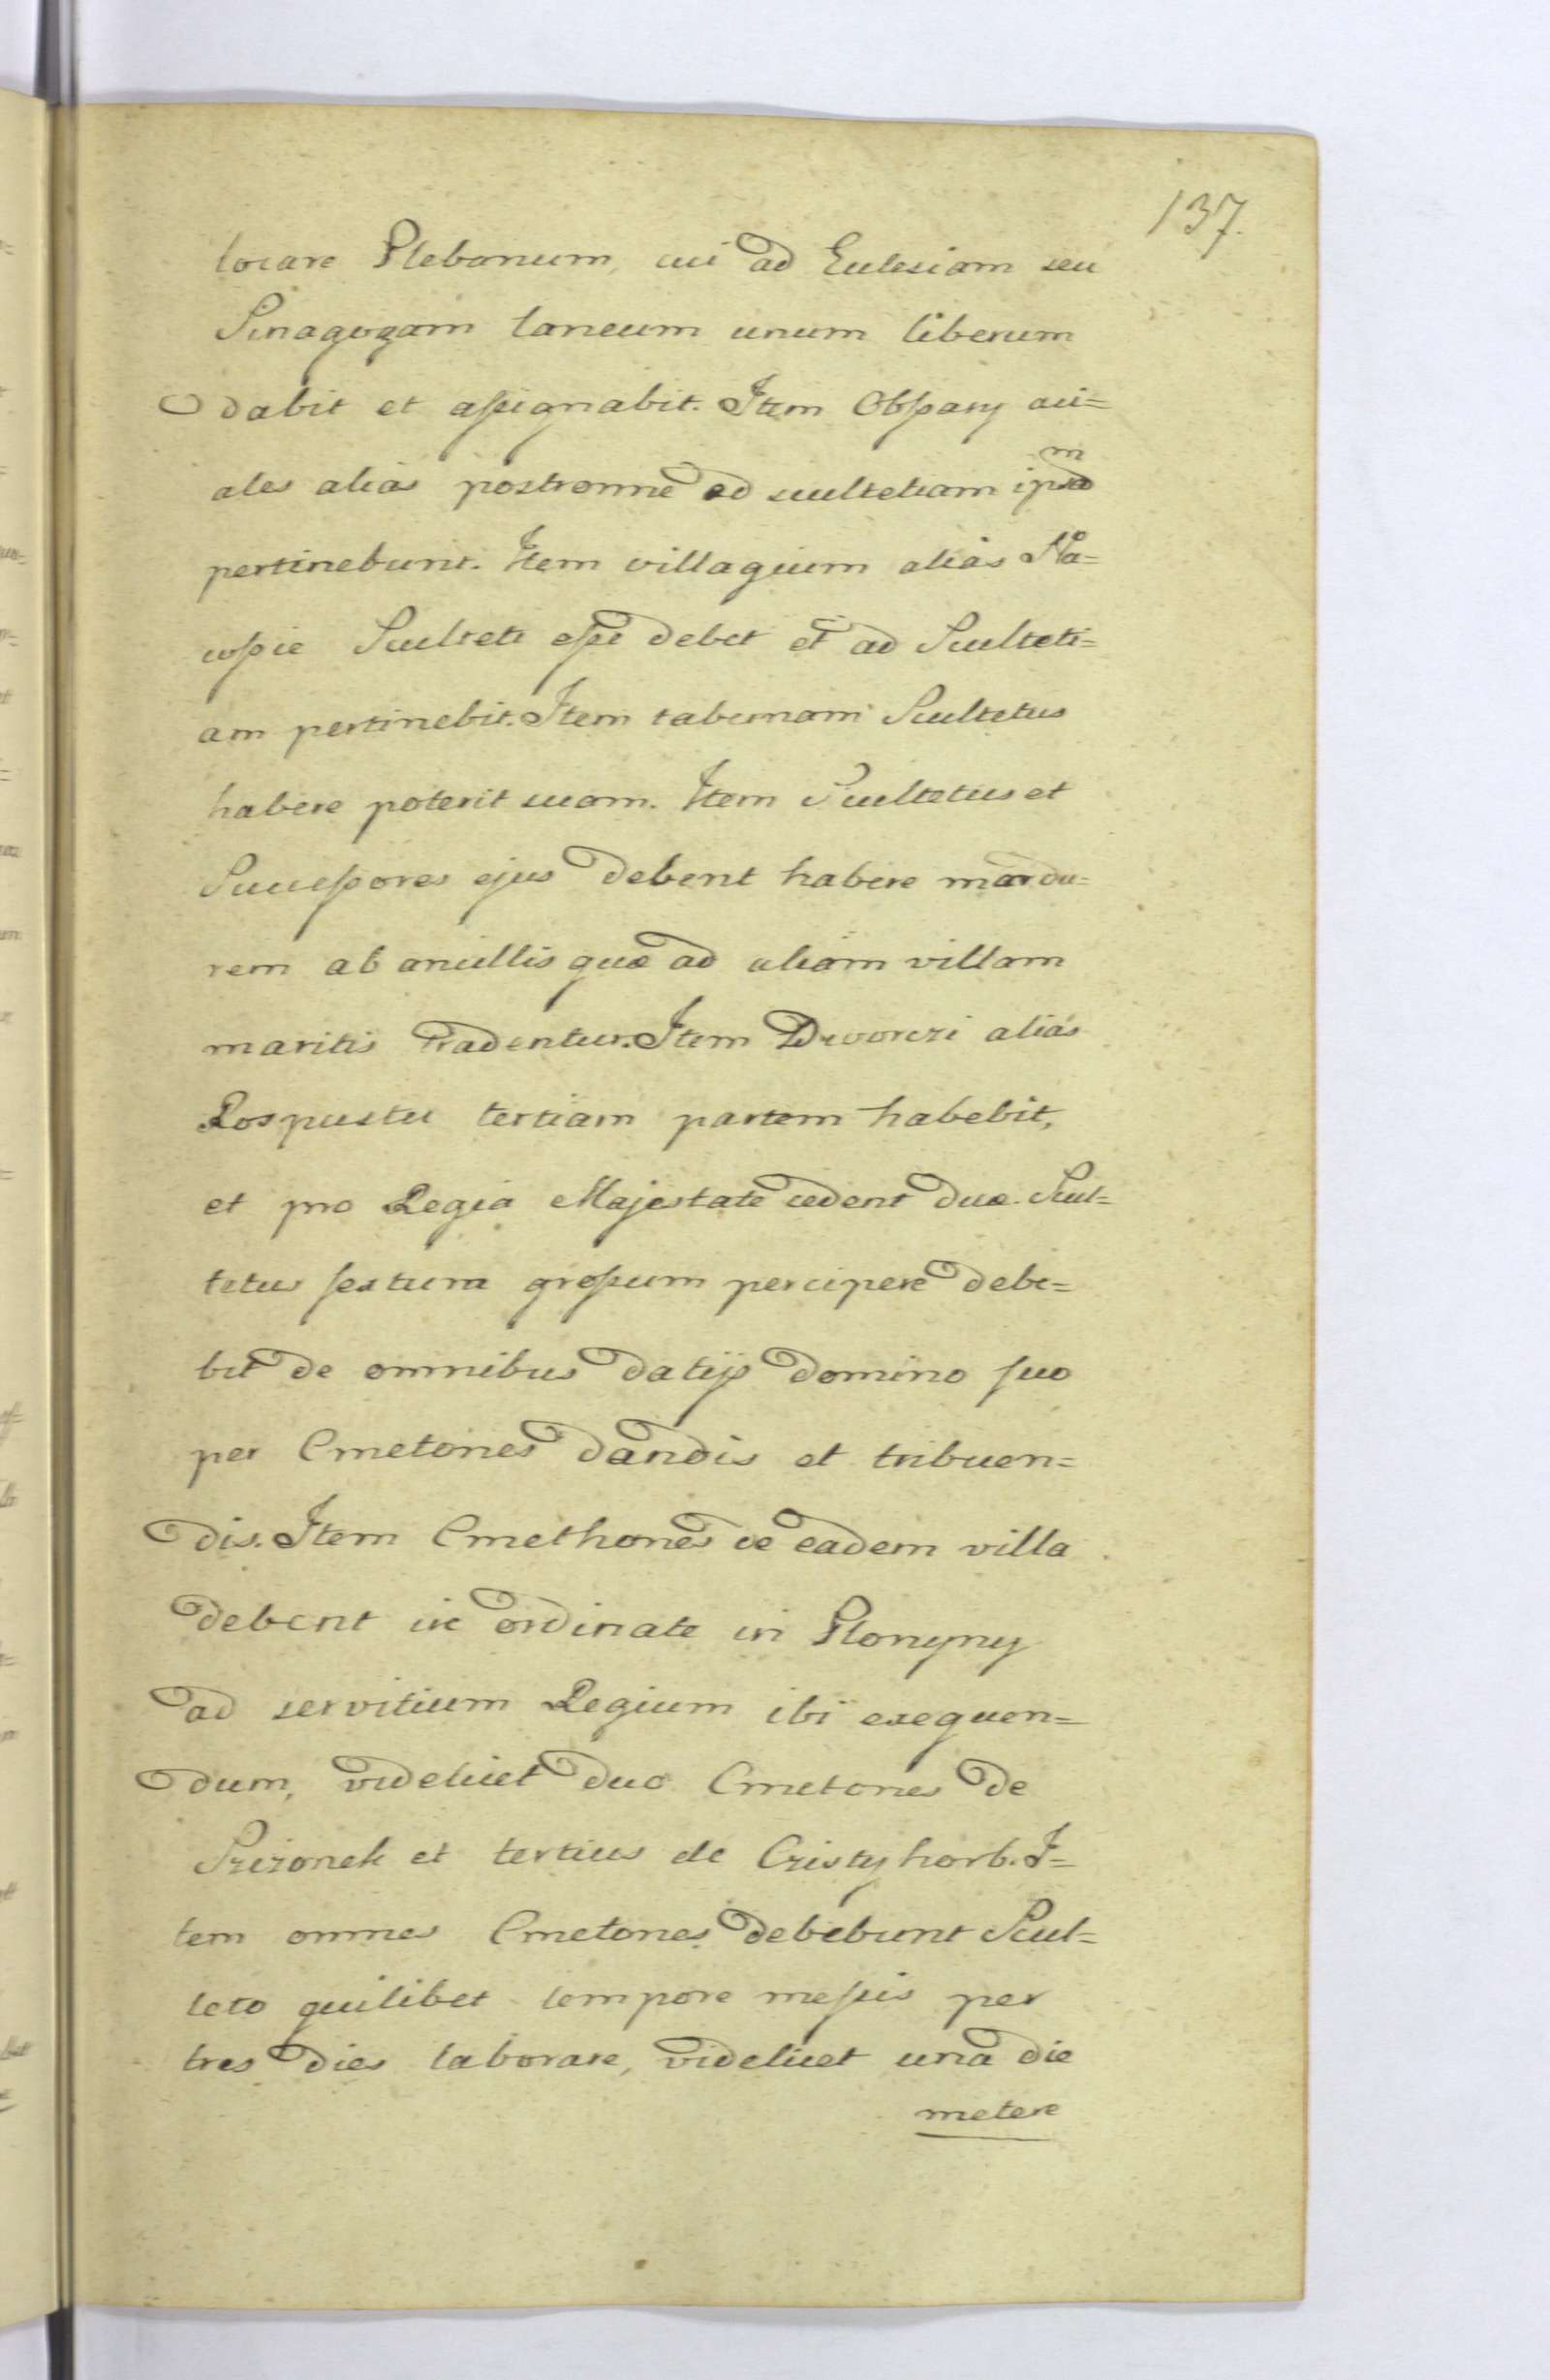 137.
locare Plebanum, cui ad Eulesiam seu
Sinagogam laneum unum liberum
dabit et assignabit. Item Obszary aci=
ales alias postronne ad scultetiam ipsam
pertinebunt. Item villagium alias Na=
cossie Sculteti esse debet et ad Sculteti=
am pertinebit. Item tabernam Scultetus
habere poterit suam. Item Scultetus et
Successores ejus debent habere mardu=
rem ab ancillis quæ ad aliam villam
maritis tradentur. Item Dworczi aliás
Rospustu tertiam partem habebit,
et pro Regia Majestate cedent duæ. Scul=
tetus sextum grossum percipere debe=
bit de omnibus datijs domino suo
per Cmetones dandis et tribuen=
dis. Item Cmethones de eadem villa
debent ire ordinate in Plonyny
ad servitium Regium ibi exequen=
dum, videlicet duo Cmetones de
Szczonek et tertius de Czistyhorb. I=
tem omnes Cmetones debebunt Scul=
teto quilibet tempore messis per
tres dies laborare, videlicet una die
metere